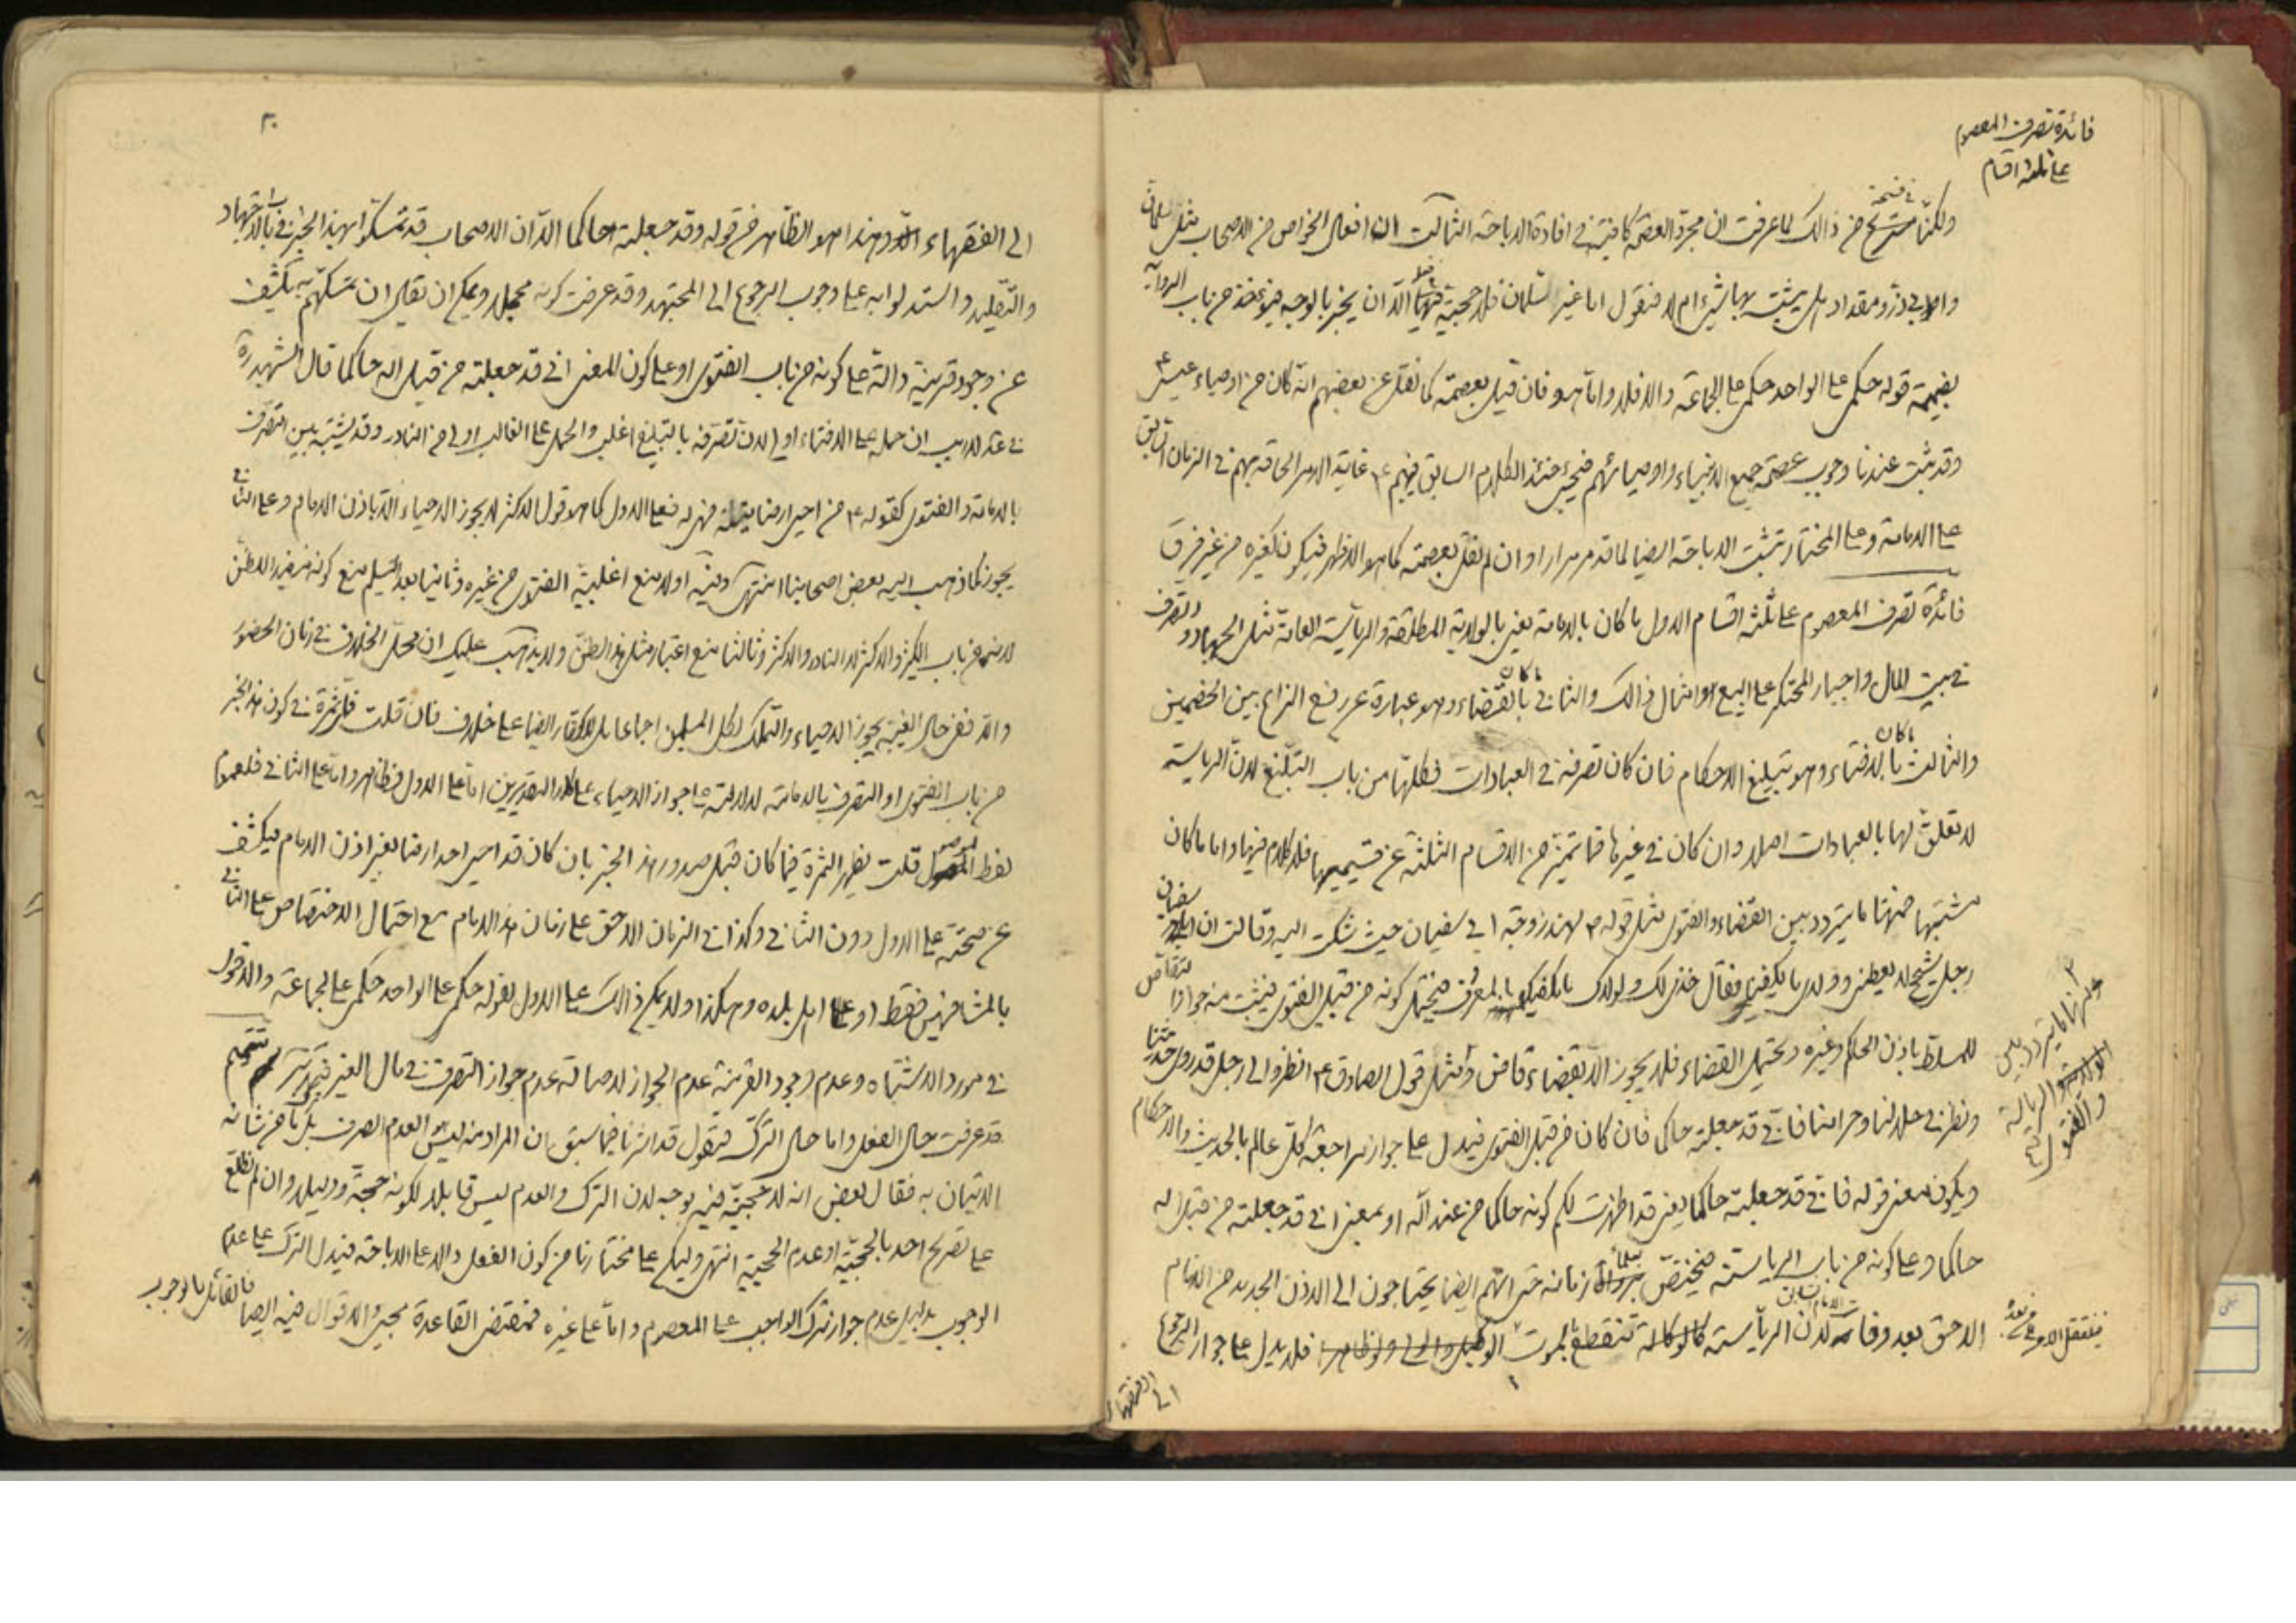 فائدة تصرف المعصوم
على ثلثة اقسام
ولكنا في فسحة من ذالك لما عرفت ان مجرد العصمة كافية في افادة الاباحة الثالث ان افعال الخواص من الاصحاب مثل سلمان
وابي ذر ومقداد هل يثبت بها شيء ام لا فنقول اما غير سلمان فلا حجية فعلهم الا ان يخبر بالوجه فيؤخذ من باب الرواية
بضميمة قوله حكمي على الواحد حكمي على الجماعة والا فلا واما هو فان قيل بعصمته كما نقل عن بعضهم انه كان من اوصياء عيسى ع
وقد ثبت عندنا وجوب عصمة جميع الانبياء واوصيائهم فيجيء حينئذ الكلام السابق فيهم ع غاية الامر الحاقه بهم في الزمان السابق
على الامامة وعلى المختار تثبت الاباحة ايضا لما قد مر مرارا وان لم نقل بعصمته كما هو الاظهر فيكون كغيره من غير فرق
فائدة تصرف المعصوم على ثلثة اقسام الاول ما كان بالامامة يعني بالولاية المطلقة والرياسة العامة مثل الجهاد والتصرف
في بيت المال واجبار المحتكر على البيع وامثال ذالك والثاني ما كان بالقضاء وهو عبارة عن رفع النزاع بين الخصمين
والثالث ما كان بالافتاء وهو تبليغ الاحكام فان كان تصرفه في العبادات فكلها من باب التبليغ لان الرياسة
لا تعلق لها بالعبادات اصلا وان كان في غيرها فما تميز من الاقسام الثلثة عن قسيميها فلا كلام فيها واما ما كان
مشتبها فمنها ما يتردد بين القضاء والفتوى مثل قوله ص لهند زوجة ابي سفيان حيث شكت اليه وقالت ان ابا سفيان
رجل شحيح لا يعطيني وولدي ما يكفيني فقال خذي لك ولولدك ما يكفيك بالمعروف فيحتمل كونه من قبيل الفتوى فيثبت منه جواز التقاص
للمسلط باذن الحاكم وغيره ويحتمل القضاء فلا يجوز الا بقضاء قاض ومثل قول الصادق ع انظروا الى رجل قد روى حديثنا
ونظر في حلالنا وحرامنا فاني قد جعلته حاكما فان كان من قبيل الفتوى فيدل على جواز مراجعة كل عالم بالحديث والاحكام
ويكون معنى قوله فاني قد جعلته حاكما يعني قد اظهرت لكم كونه حاكما من عند الله او بمعنى اني قد جعلته من قبل الله
حاكما وعلى كونه من باب الرياسة فيختص بعلماء زمانه حتى انهم ايضا يحتاجون الى الاذن الجديد من الامام
اللاحق بعد وفات الامام السابق لان الرياسة كالوكالة تنقطع بالموت فلا يدل على جواز الرجوع
الى الفقهاء
ومنها ما يتردد بين
الرياسة
والفتوى
فينتقل الامر الى من بعده
٢٠
الى الفقهاء الان وهذا هو الظاهر من قوله وقد جعلته حاكما الا ان الاصحاب قد تمسكوا بهذا الخبر في باب الاجتهاد
والتقليد واستدلوا به على وجوب الرجوع الى المجتهد وقد عرفت كونه مجملا ويمكن ان يقال ان تمسكهم به يكشف
عن وجود قرينة دالة على كونه من باب الفتوى او على كون المعنى اني قد جعلته من قبل اله حاكما قال الشهيد ره
في عد لا ريب ان حمله على الافتاء اولى لان تصرفه بالتبليغ اغلب والحمل على الغالب اولى من النادر وقد يشتبه بين التصرف
بالامامة والفتوى كقوله ع من احيى ارضا ميتة فهي له فعلى الاول كما هو قول الاكثر لا يجوز الاحياء الا باذن الامام وعلى الثاني
يجوز كما ذهب اليه بعض اصحابنا انتهى وفيه اولا منع اغلبية الفتوى من غيره وثانيا بعد التسليم منع كونه مفيدا للظن
لانهما من باب الكثير والاكثر لا النادر والاكثر وثالثا منع اعتبار مثل هذا الظن ولا يذهب عليك ان محل الخلاف في زمان الحضور
والا ففي حال الغيبة يجوز الاحياء والتملك لكل المسلمين اجماعا بل للكفار ايضا على خلاف فان قلت فلا ثمرة في كون هذا الخبر
من باب الفتوى او التصرف بالامامة لدلالته على جواز الاحياء على كلا التقديرين اما على الاول فظاهر واما على الثاني فلعموم
لفظ الموصول قلت يظهر الثمرة فيما كان قبل صدور هذا الخبر بان كان قد احيى احد ارضا بغير اذن الامام فيكشف
عن صحته على الاول دون الثاني وكذا في الزمان اللاحق على زمان هذا الامام مع احتمال الاختصاص على الثاني
بالمشافهين فقط او على اهل بلده وهكذا ولا يمكن ذالك على الاول لقوله حكمي على الواحد حكمي على الجماعة والاقوال
في مورد الاشتباه وعدم وجود القرينة عدم الجواز لاصالة عدم جواز التصرف في مال الغير فتدبر تتميم
قد عرفت حال الفعل واما حال الترك فنقول قد اشرنا فيما سبق ان المراد منه ليس العدم الصرف بل ما من شانه
الاتيان به فقال بعض انه لا حجية فيه بوجه لان الترك والعدم ليس قابلا لكونه حجة ودليلا وان لم نطلع
على تصريح احد بالحجية او عدم الحجية انتهى وليكن على مختارنا من كون الفعل دالا على الاباحة فيدل الترك على عدم
الوجوب بدليل عدم جواز ترك الواجب على المعصوم واما على غيره فمقتضى القاعدة مجيء الاقوال فيه ايضا فالقائل بالوجوب